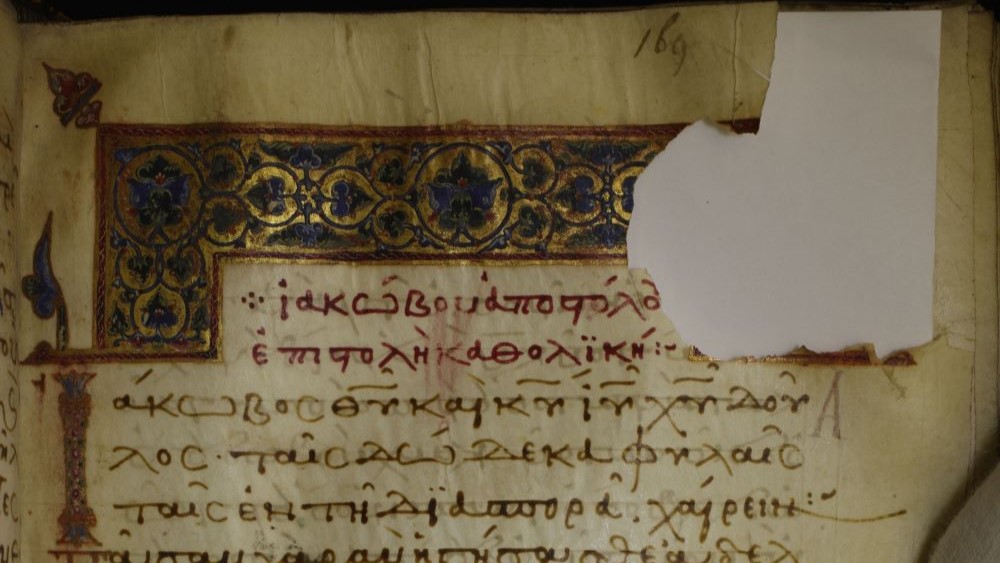 169
ἰακώβου ἀποστόλο
ἐπιστολὴ καθολϊκή:~
Ἰάκωβος θυ καὶ κυ ιυ χυ δοῦ
λος· ταῖς δώδεκα φυλαῖς
ταῖς ἐν τῆ δϊασπορᾶ. χαίρειν:~
Α